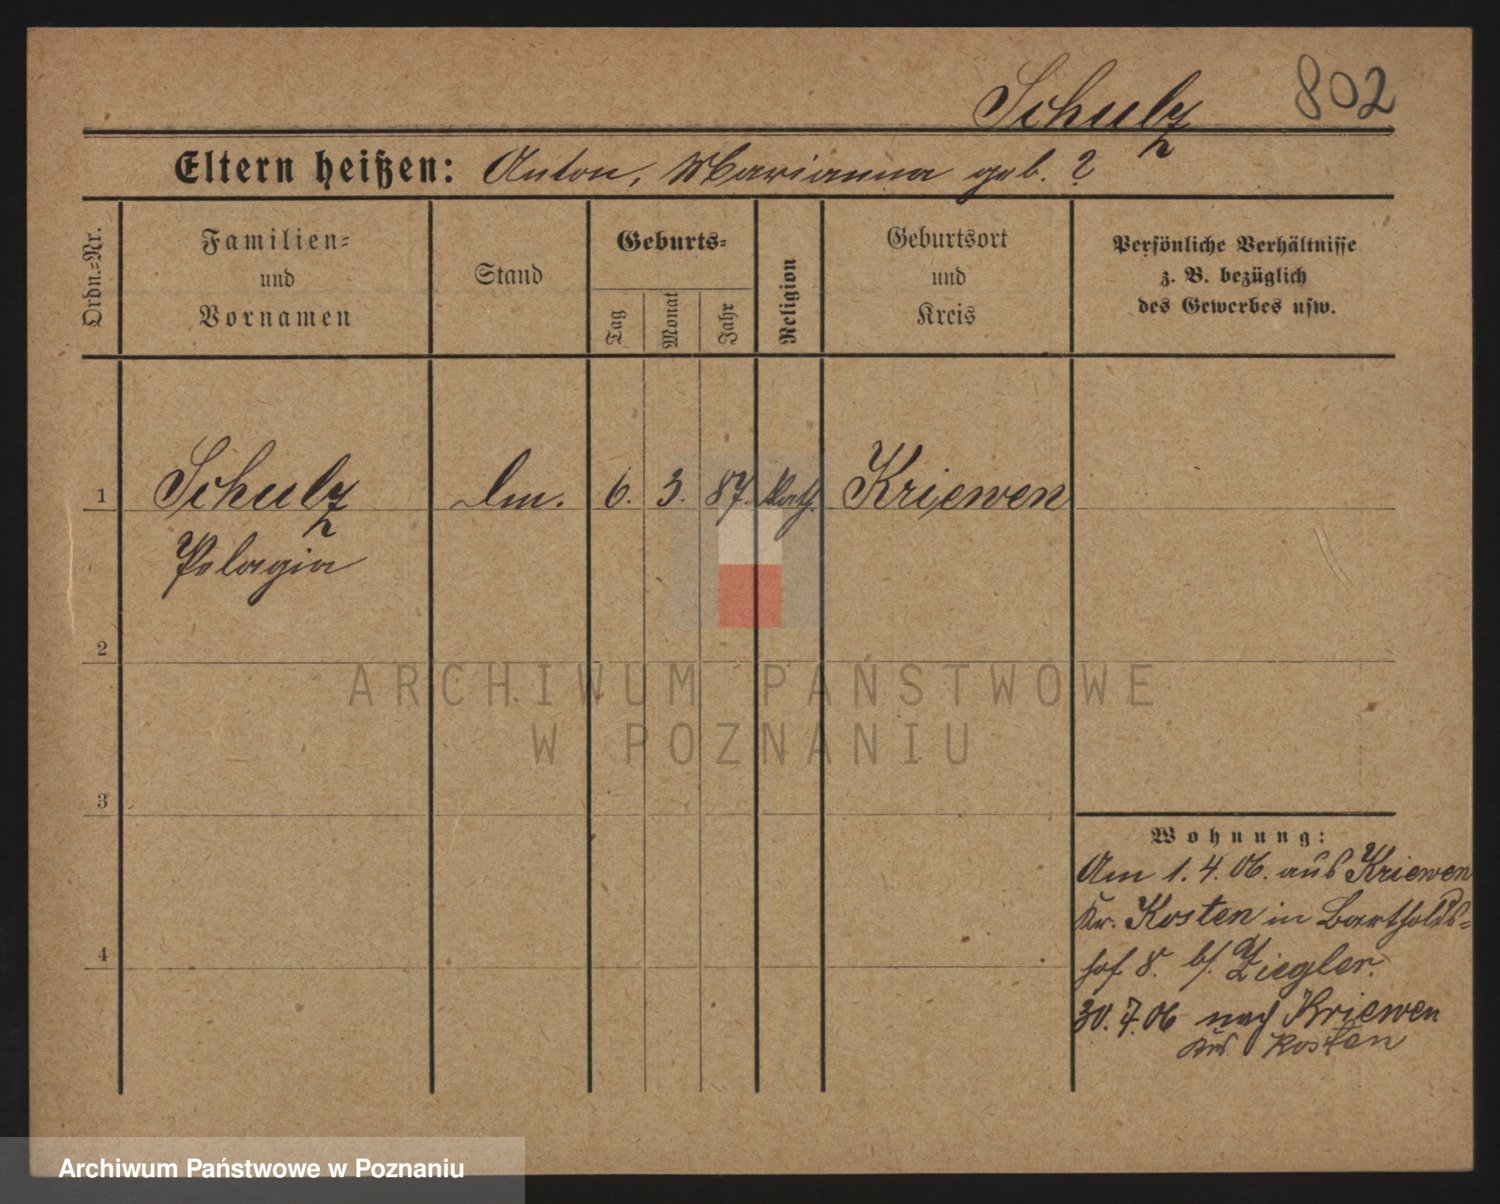 Schulz 802
Eltern heißen: Anton, Marianna geb. ?
Ordn.-Nr.
Familien-
und
Vornamen
Stand
Geburts-
Tag
Monat
Jahr
Religion
Geburtsort
und
Kreis
Persönliche Verhältnisse
z. B. bezüglich
des Gewerbes usw.
1 Schulz 6. 3. 87. kath. Kriewen
Pelagia
2
ARCHIWUM PAŃSTWOWE
W POZNANIU
3
Wohnung:
Am 1.4.06. aus Kriewen
Kr. Kosten in Bartholds-
hof 8. b/. Ziegler.
4
30.7.06 nach Kriewen
Kosten
Archiwum Państwowe w Poznaniu